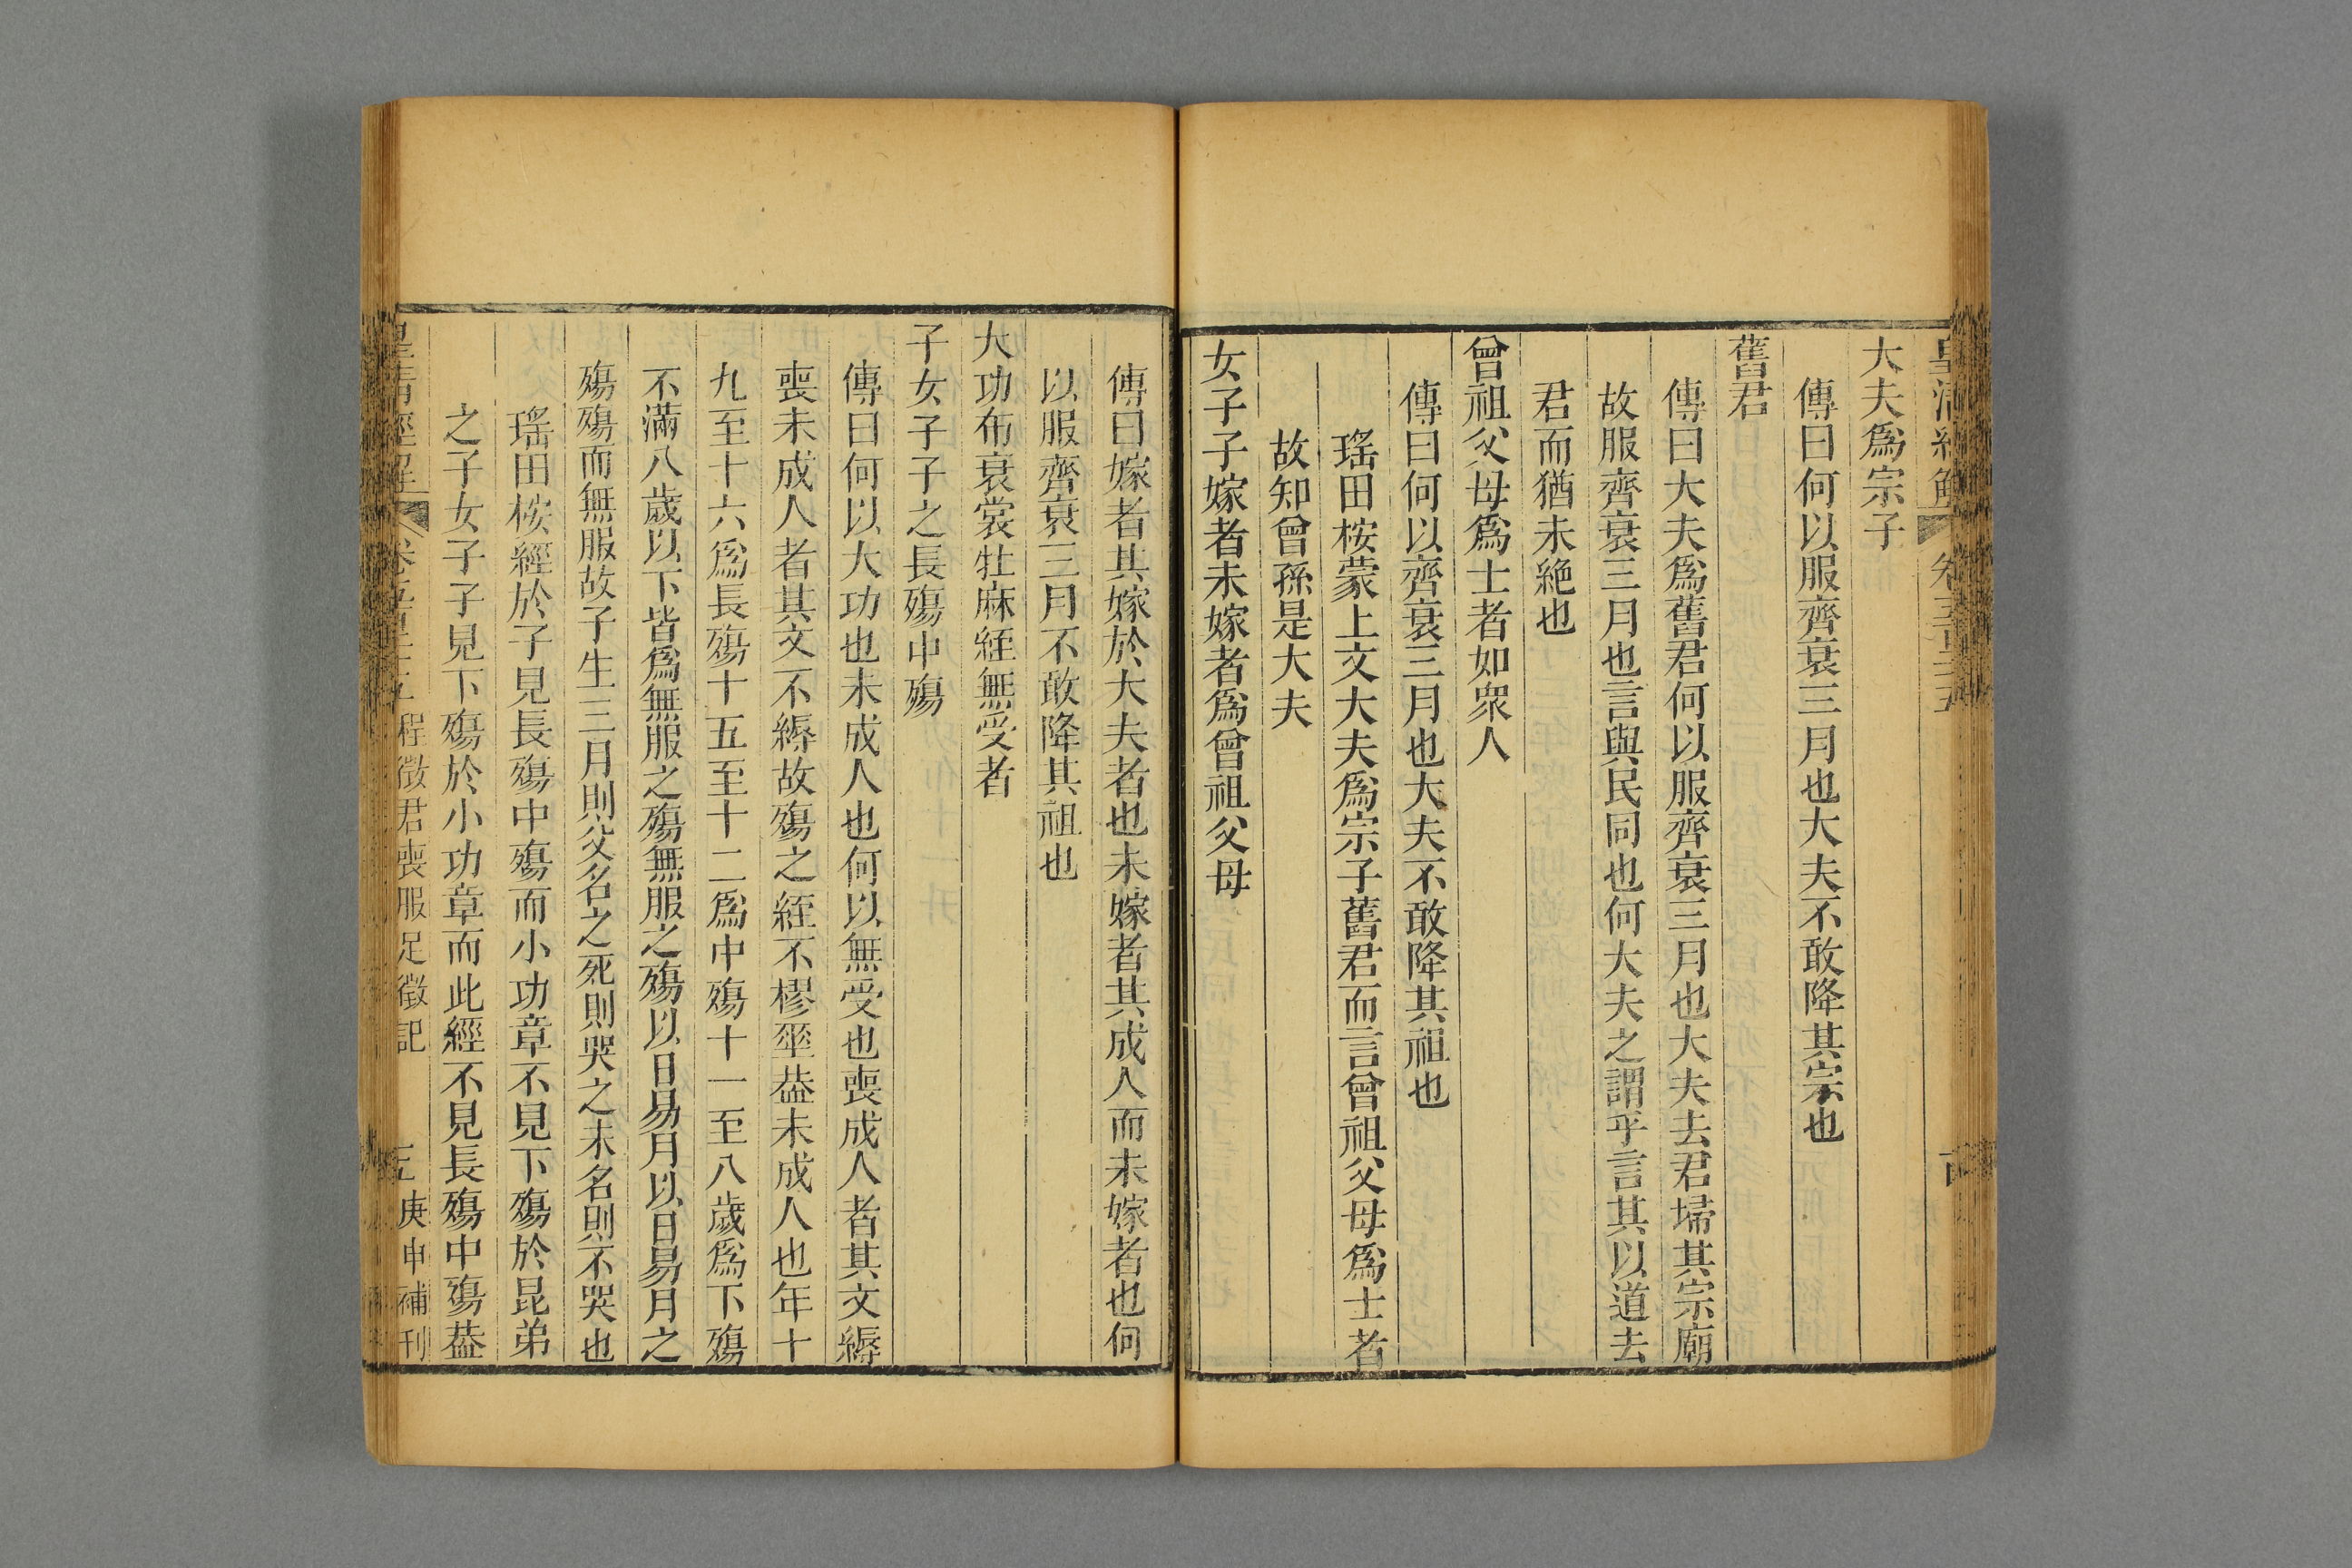 大夫爲宗子
傳曰何以服齊衰三月也大夫不敢降其宗也
舊君
傳曰大夫爲舊君何以服齊衰三月也大夫去君埽其宗廟
故服齊衰三月也言與民同也何大夫之謂乎言其以道去
君而猶未絶也
曾祖父母爲士者如衆人
傳曰何以齊衰三月也大夫不敢降其祖也
瑤田桉蒙上文大夫爲宗子舊君而言曾祖父母爲士者
故知曾孫是大夫
女子子嫁者未嫁者爲曾祖父母
傳曰嫁者其嫁於大夫者也未嫁者其成人而未嫁者也何
以服齊衰三月不敢降其祖也
大功布衰裳牡麻絰無受者
子女子子之長殤中殤
傳曰何以大功也未成人也何以無受也喪成人者其文縟
喪未成人者其文不縟故殤之絰不樛垂葢未成人也年十
九至十六爲長殤十五至十二爲中殤十一至八歲爲下殤
不滿八歲以下皆爲無服之殤無服之殤以日易月以日易月之
殤殤而無服故子生三月則父名之死則哭之未名則不哭也
瑤田桉經於子見長殤中殤而小功章不見下殤於昆弟
之子女子子見下殤於小功章而此經不見長殤中殤葢
皇清經解 卷五百二十五 程徵君喪服足徵記 庚申補刊